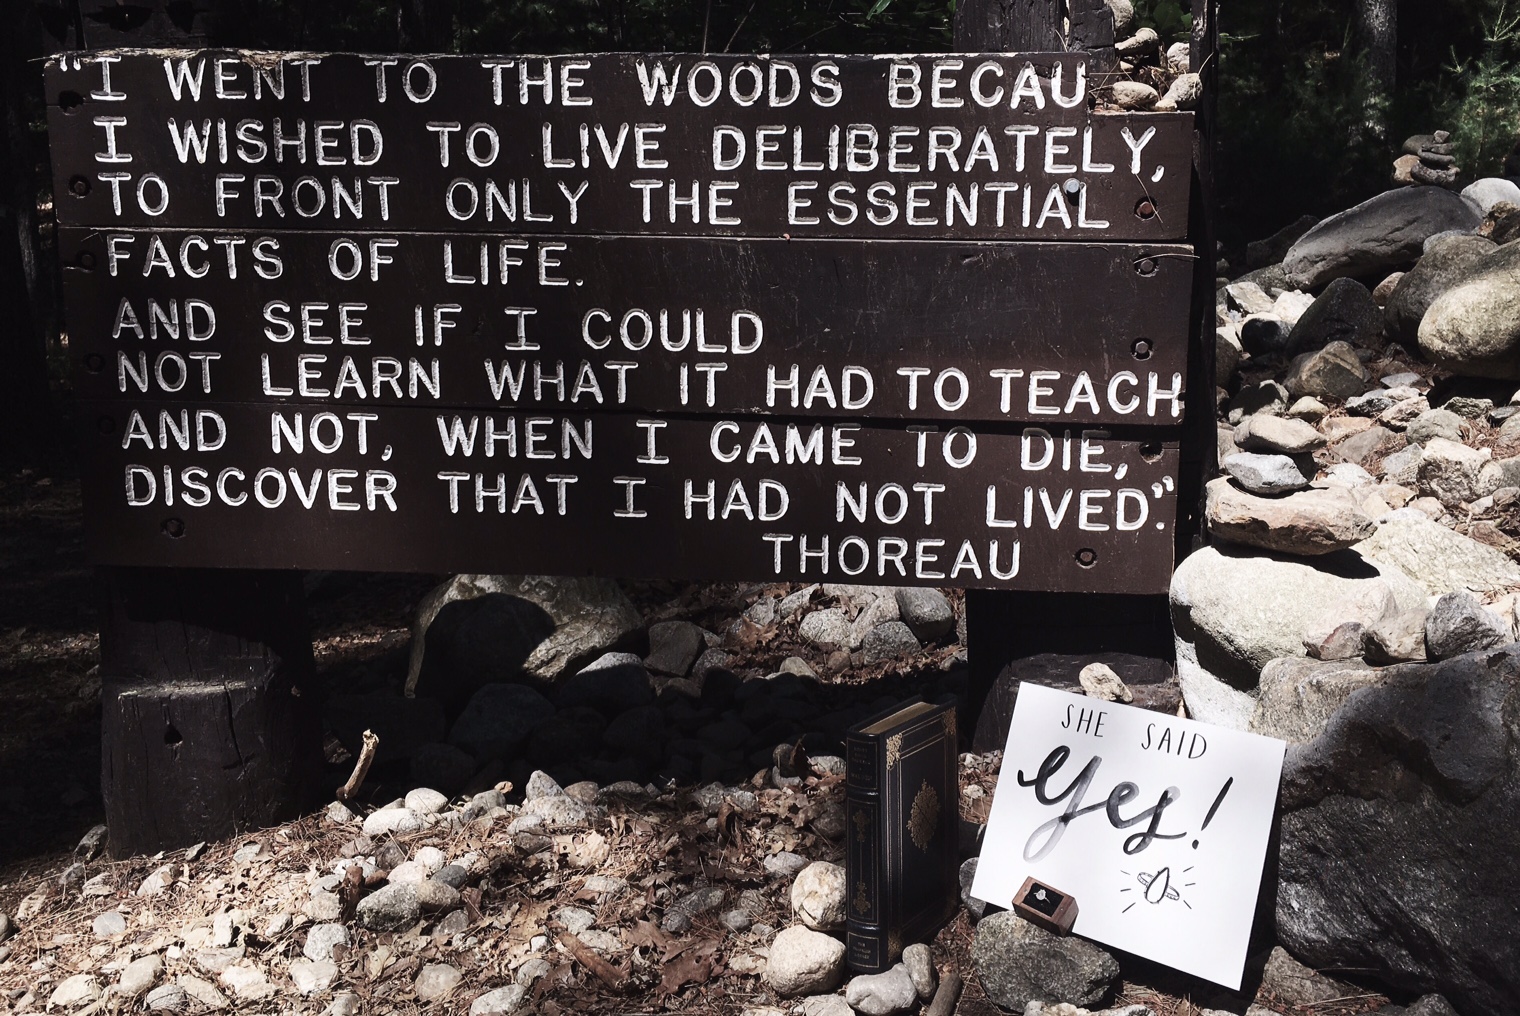 “I WENT TO THE WOODS BECAU
I WISHED TO LIVE DELIBERATELY,
TO FRONT ONLY THE ESSENTIAL
FACTS OF LIFE.
AND SEE IF I COULD
NOT LEARN WHAT IT HAD TO TEACH
AND NOT, WHEN I CAME TO DIE,
DISCOVER THAT I HAD NOT LIVED.”
THOREAU
SHE SAID
yes!